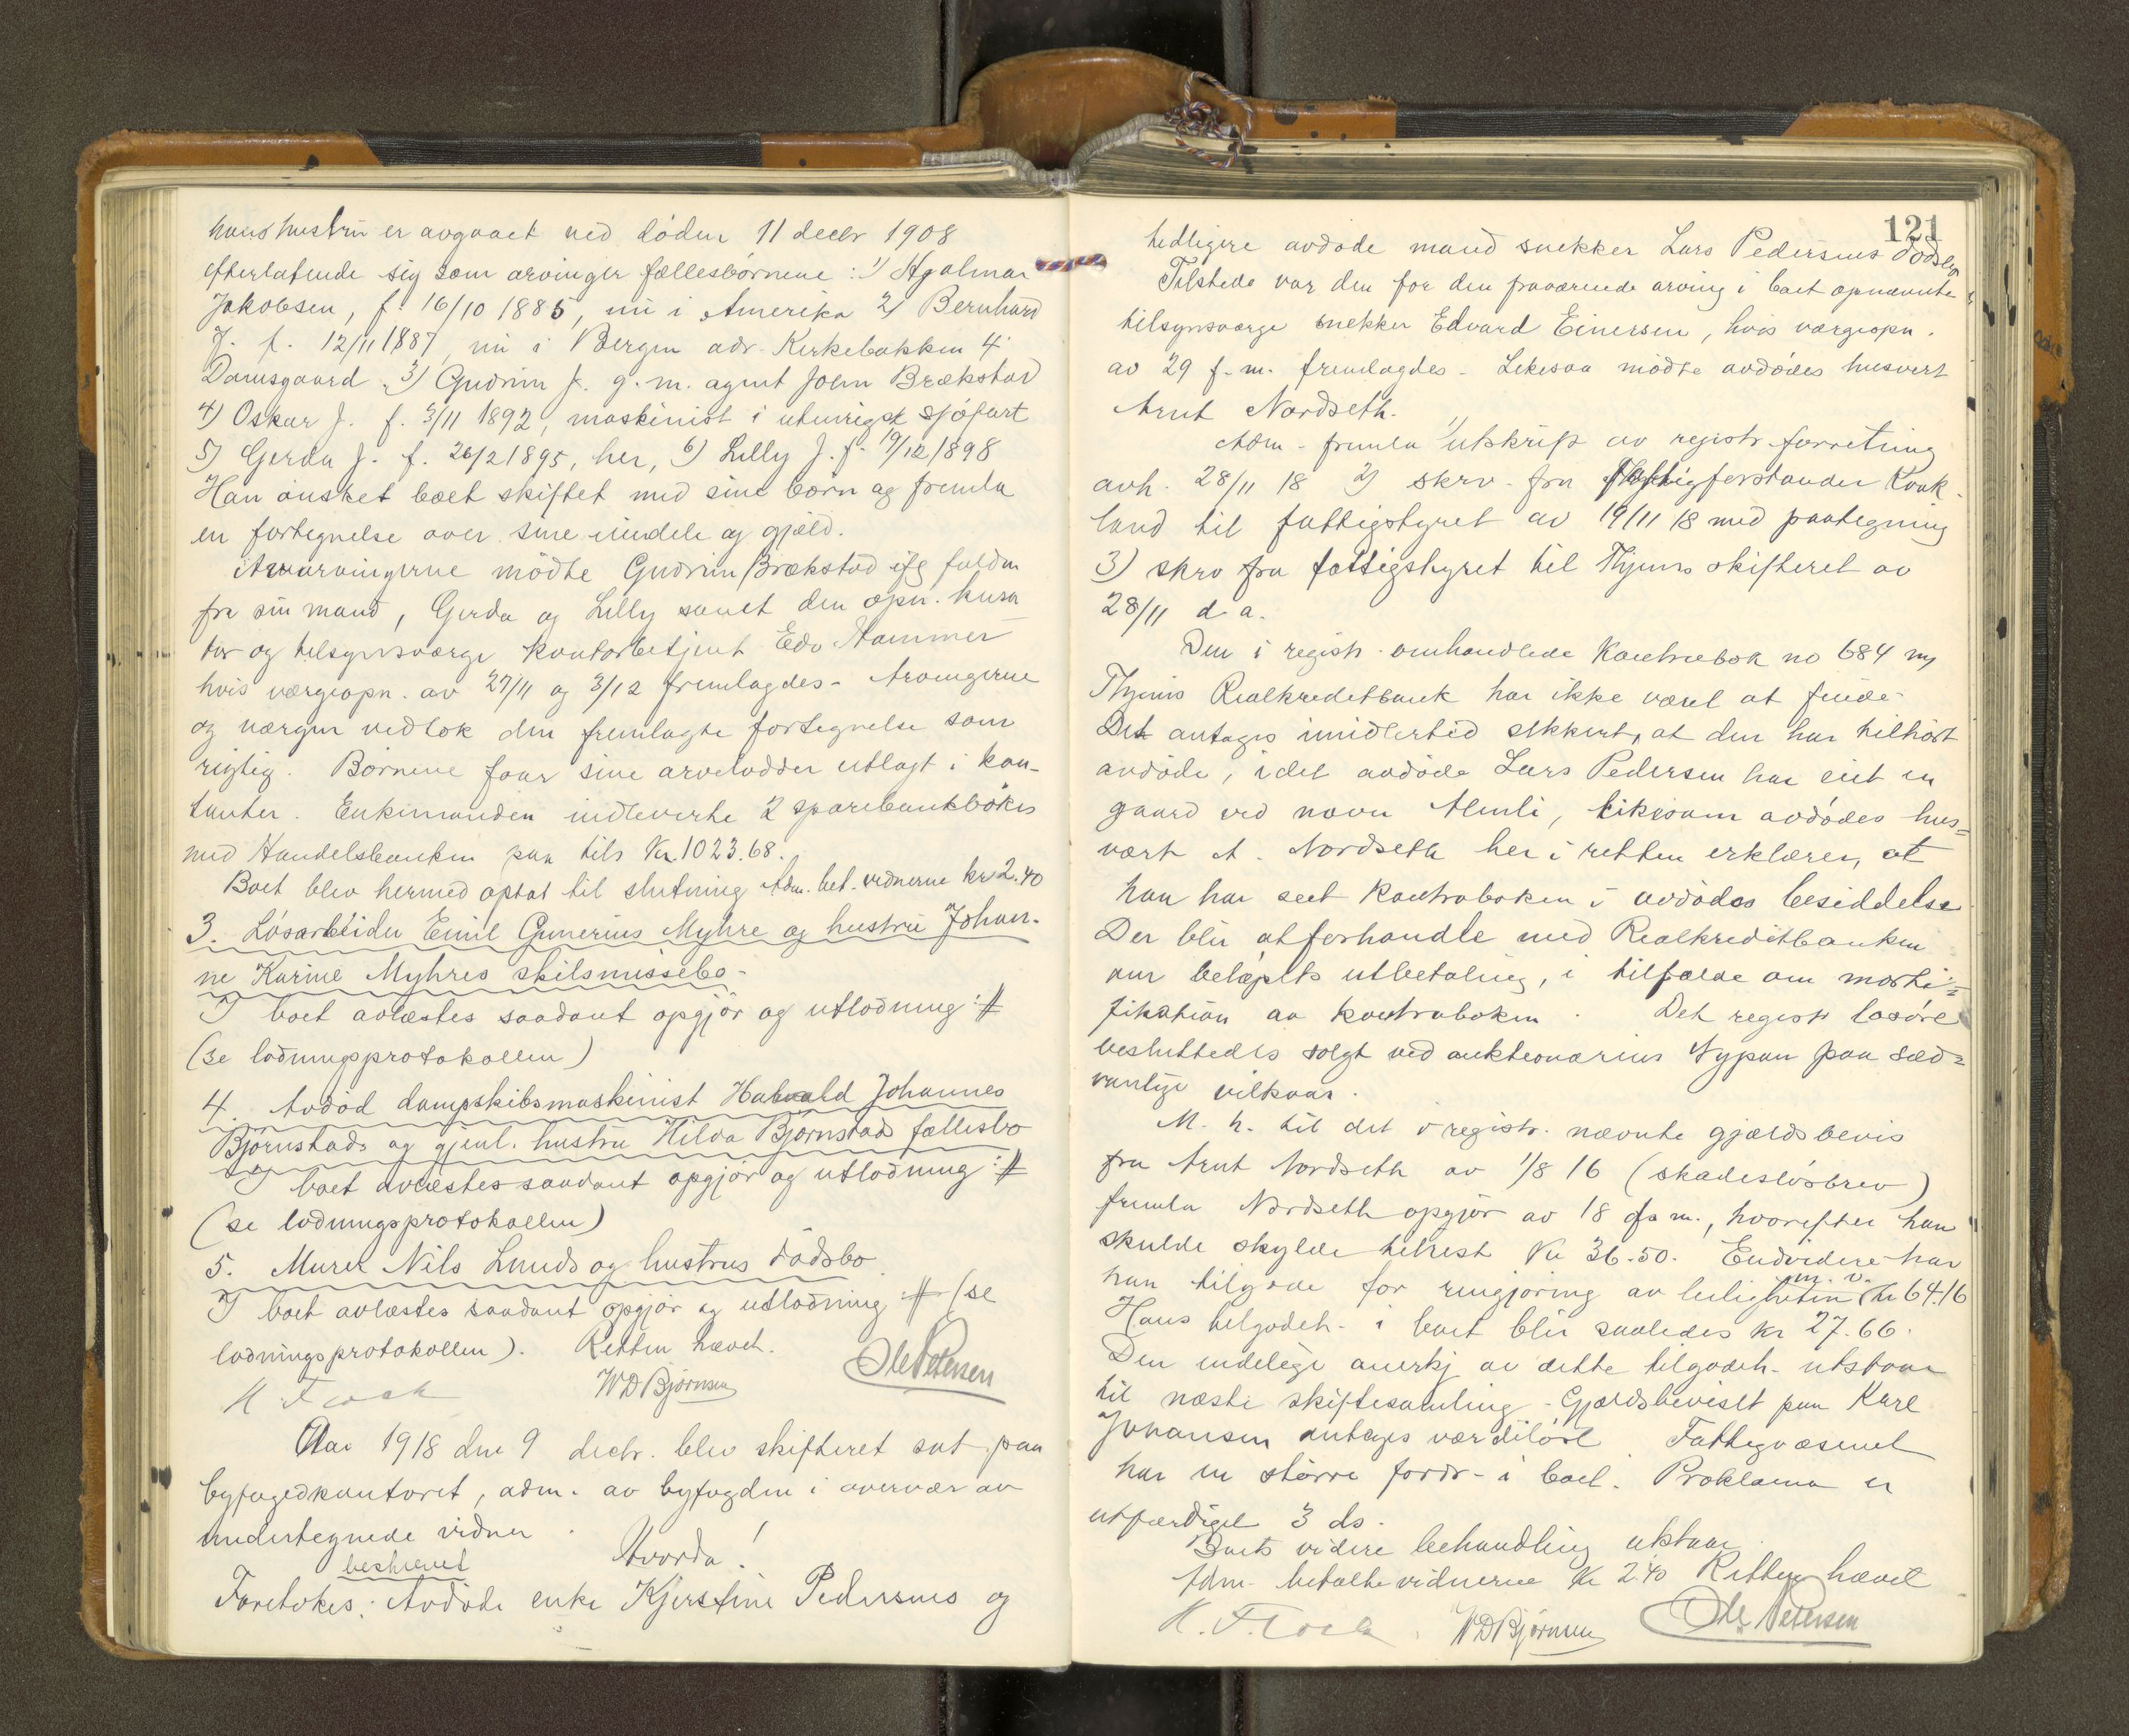 hans hustru er avgaaet ved döden 11 decbr 1908
efterlatende sig som arvinger fællesbörnene: 1) Hjalmar
Jakobsen, f. 16/10 1885, nu i Amerika 2) Bernhard
J. f. 12/11 1887 nu i Bergen adr. Kirkebakken 4
Damsgaard 3) Gudrun J. g. m. agent John Brækstad
4) Oskar J. f. 3/11 1892, maskinist i utenrigsk sjöfart
5) Gerda J. f. 26/2 1895, her, 6) Lilly J. f. 19/12 1898
Han önsket boet skiftet med sine börn og fremla
en fortegnelse over sine eiendele og gjæld.
Av arvingerne mödte Gudrun Brækstad ifg fuldm
fra sin mand, Gerda og Lilly samt den opn. kura
tor og tilsynsværge kontorbetjent Edv Hammer
hvis værgeopn. av 27/11 og 3/12 fremlagdes - Arvingerne
og værgen vedtok den fremlagte fortegnelse som
rigtig. Börnene faar sine arvelodder utlagt i kon-
tanter. Enkemanden indleverte 2 sparebankböker
med Handelsbanken paa tils Kr. 1023.68.
Boet blev hermed optat til slutning Adm. bet. vidnerne kr 2.40
3. Lösarbeider Emil Gunerius Myhre og hustru Johan-
ne Karine Myhres skilsmissebo -
I boet avlæstes saadant opgjör og utlodning: #
(se lodningsprotokollen)
4. Avdöd dampskibsmaskinist Halvald Johannes
Björnstads og gjenl. hustru Hilda Björnstads fællesbo
I boet avlæstes saadant opgjör og utlodning: #
(se lodningsprotokollen)
5. Murer Nils Lunds og hustrus dödsbo.
I boet avlæstes saadant opgjör og utlodning # (se
lodningsprotokollen). Retten hævet.
WDBjörnsen Ole Petersen
Aar 1918 den 9 decbr. blev skifteret sat paa
byfogedkontoret, adm. av byfogden i overvær av
undertegnede vidner.
Hvorda!
beskrevet
Foretokes: Avdöde enke Kjerstine Pedersens og
121
tidligere avdöde mand snekker Lars Pedersens dödsbo
Tilstede var den for den fraværende arving i boet opnævnte
tilsynsværge snekker Edvard Einersen, hvis værgeopn.
av 29 f. m. fremlagdes - Likesaa mödte avdödes husvert
Arnt Nordseth.
Adm. fremla 1) utskrift av registr. forretning
avh. 28/11 18 2) skrv. fra fattigforstander Kvak-
land til fattigstyret av 19/11 18 med paategning
3) skrv fra fattigstyret til Thjems skifteret av
28/11 d. a.
Den i registr. omhandlede Kontrabok no 684 m/
Thjems Realkreditbank har ikke været at finde.
Det antages imidlertid sikkert, at den har tilhört
avdöde, idet avdöde Lars Pedersen har eiet en
gaard ved navn Almli, likesom avdödes hus=
vært A. Nordseth her i retten erklærer, at
han har seet kontraboken i avdödes besiddelse
Der blir at forhandle med Realkreditbanken
om belöpets utbetaling, i tilfælde om morti=
fikation av kontraboken. Det registr lösöre
besluttedes solgt ved auktionarius Nypan paa sæd=
vanlige vilkaar.
M. h. til det i registr. nævnte gjældsbevis
fra Arnt Nordseth av 1/8 16 (skadeslösbrev)
fremla Nordseth opgjör av 18 f. m., hvorefter han
skulde skylde tilrest Kr 36.50. Endvidere har
m. v.
han tilgode for rengjöring av leiligheten kr 64.16
Hans tilgodeh. i boet blir saaledes kr 27.66.
Den endelige anerkj av dette tilgodeh. utstaar
til næste skiftesamling - Gjældsbeviset paa Karl
Johansen antages værdilöst. Fattigvæsenet
har en större fordr. i boet. Proklama er
utfærdiget 3 ds.
Boets videre behandling utstaar.
Adm. betalte vidnerne Kr 2.40 Retten hævet
WDBjörnsen Ole Petersen